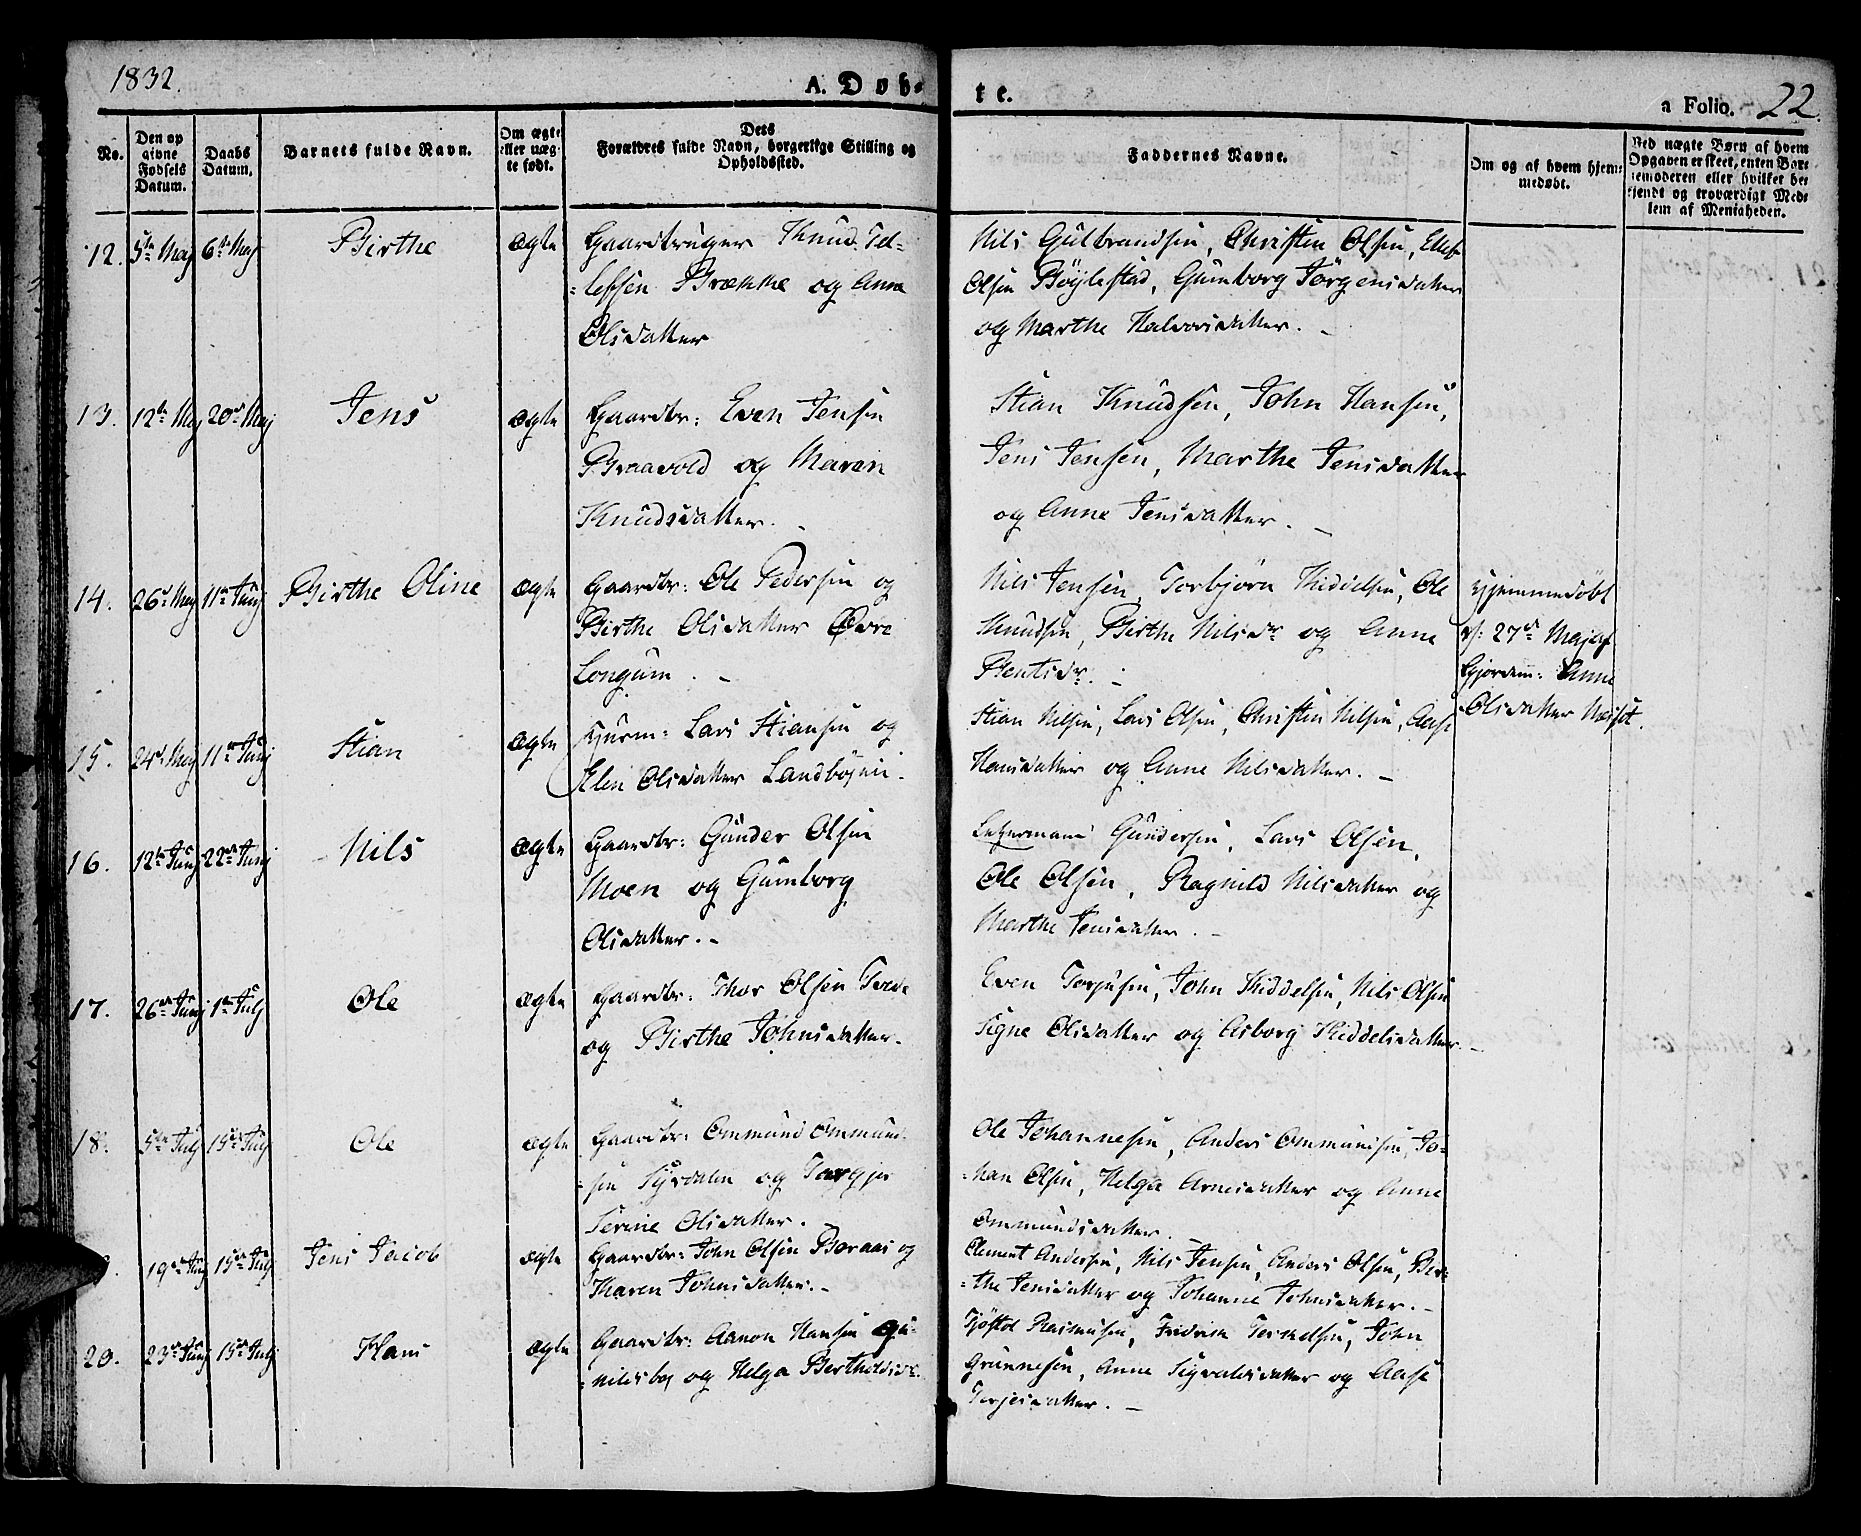 1832.
A. Døb-
te.
a Folio. 22.
No.
Den op
givne
Fødsels
Datum.
Daabs
Datum.
Barnets fulde Navn.
Om ægte
eller uæg-
te født.
Dets
Forældres fulde Navn, borgerlige Stilling og
Opholdssted.
Faddernes Navne.
Om og af hvem hjem-
medøbt.
Ved uægte Børn af hvem
Opgaven er skeet, enten Bar-
nemoderen eller hvilket be-
kjendt og troværdigt Med-
lem af Menigheden.
12. 5te Maj 6te Maj Birthe ægte Gaardbruger Knud Tel-
-lefsen Brække og Anne
Olsdatter
Nils Gulbrandsen, Christen Olsen,
Olsen Bøylestad, Gumborg Jörgensdatter
og Marthe Halvorsdatter. -
13. 12te Maj 20de Maj Jens ægte Gaardbr: Even Jensen
Braavold og Maren
Knudsdatter. -
Stian Knudsen, John Hansen,
Jens Jensen, Marthe Jensdatter
og Anne Jensdatter. -
14. 26de Maj 11te Junj Birthe Oline ægte Gaardbr: Ole Pedersen og
Birthe Olsdatter Øvre
Longum. -
Nils Jensen, Torbjörn Kiddelsen, Ole
Knudsen, Birthe Nilsdr og Anne
Bentsdr. -
Hjemmedöbt
d: 27de Maj af
Gjordem: Anne
Olsdatter
15. 24de Maj 11te Junj Stian ægte Huusm: Lars Stiansen og
Elen Olsdatter Landböjen.
Stian Nilsen, Lars Olsen, Christen Nilsen, Aase
Hansdatter og Anne Nilsdatter. -
16. 12te Junj 22de Junj Nils ægte Gaardbr: Gunder Olsen
Moen og Gumborg
Olsdatter. -
Gundersen, Lars Olsen,
Ole Olsen, Ragnild Nilsdatter og
Marthe Jensdatter. -
17. 26de Junj 1te Julj Ole ægte Gaardbr: Thor Olsen Tvede
og Birthe Johnsdatter.
Even Torjusen, John Kiddelsen, Nils Olsen
Signe Olsdatter og Asborg Kiddelsdatter. -
18. 5te Julj 15de Julj Ole ægte Gaardbr: Ommund Ommund-
-sen Syrdalen og Torgjer
Serine Olsdatter.
Ole Johannesen, Anders Ommundsen, Jo-
-han Olsen, Helga Arnesdatter og Anne
Ommundsdatter.
19de Junj 15de Julj Jens Jacob ægte Gaardbr: John Olsen Boraas og
Maren Johnsdatter. -
Clement Andersen, Nils Jensen, Anders Olsen, Bir-
-the Jensdatter og Johanne Johnsdatter. -
20. 23de Junj 15de Julj Hans ægte Gaardbr: Aanon Hansen Gu-
-nildsboe og Helga Bertholdsdr.
Tjöstol Rasmusen, Fredrik Terkelsen, John
Grunnesen, Anne Sigvaldsdatter og Aase
Terjesdatter. -